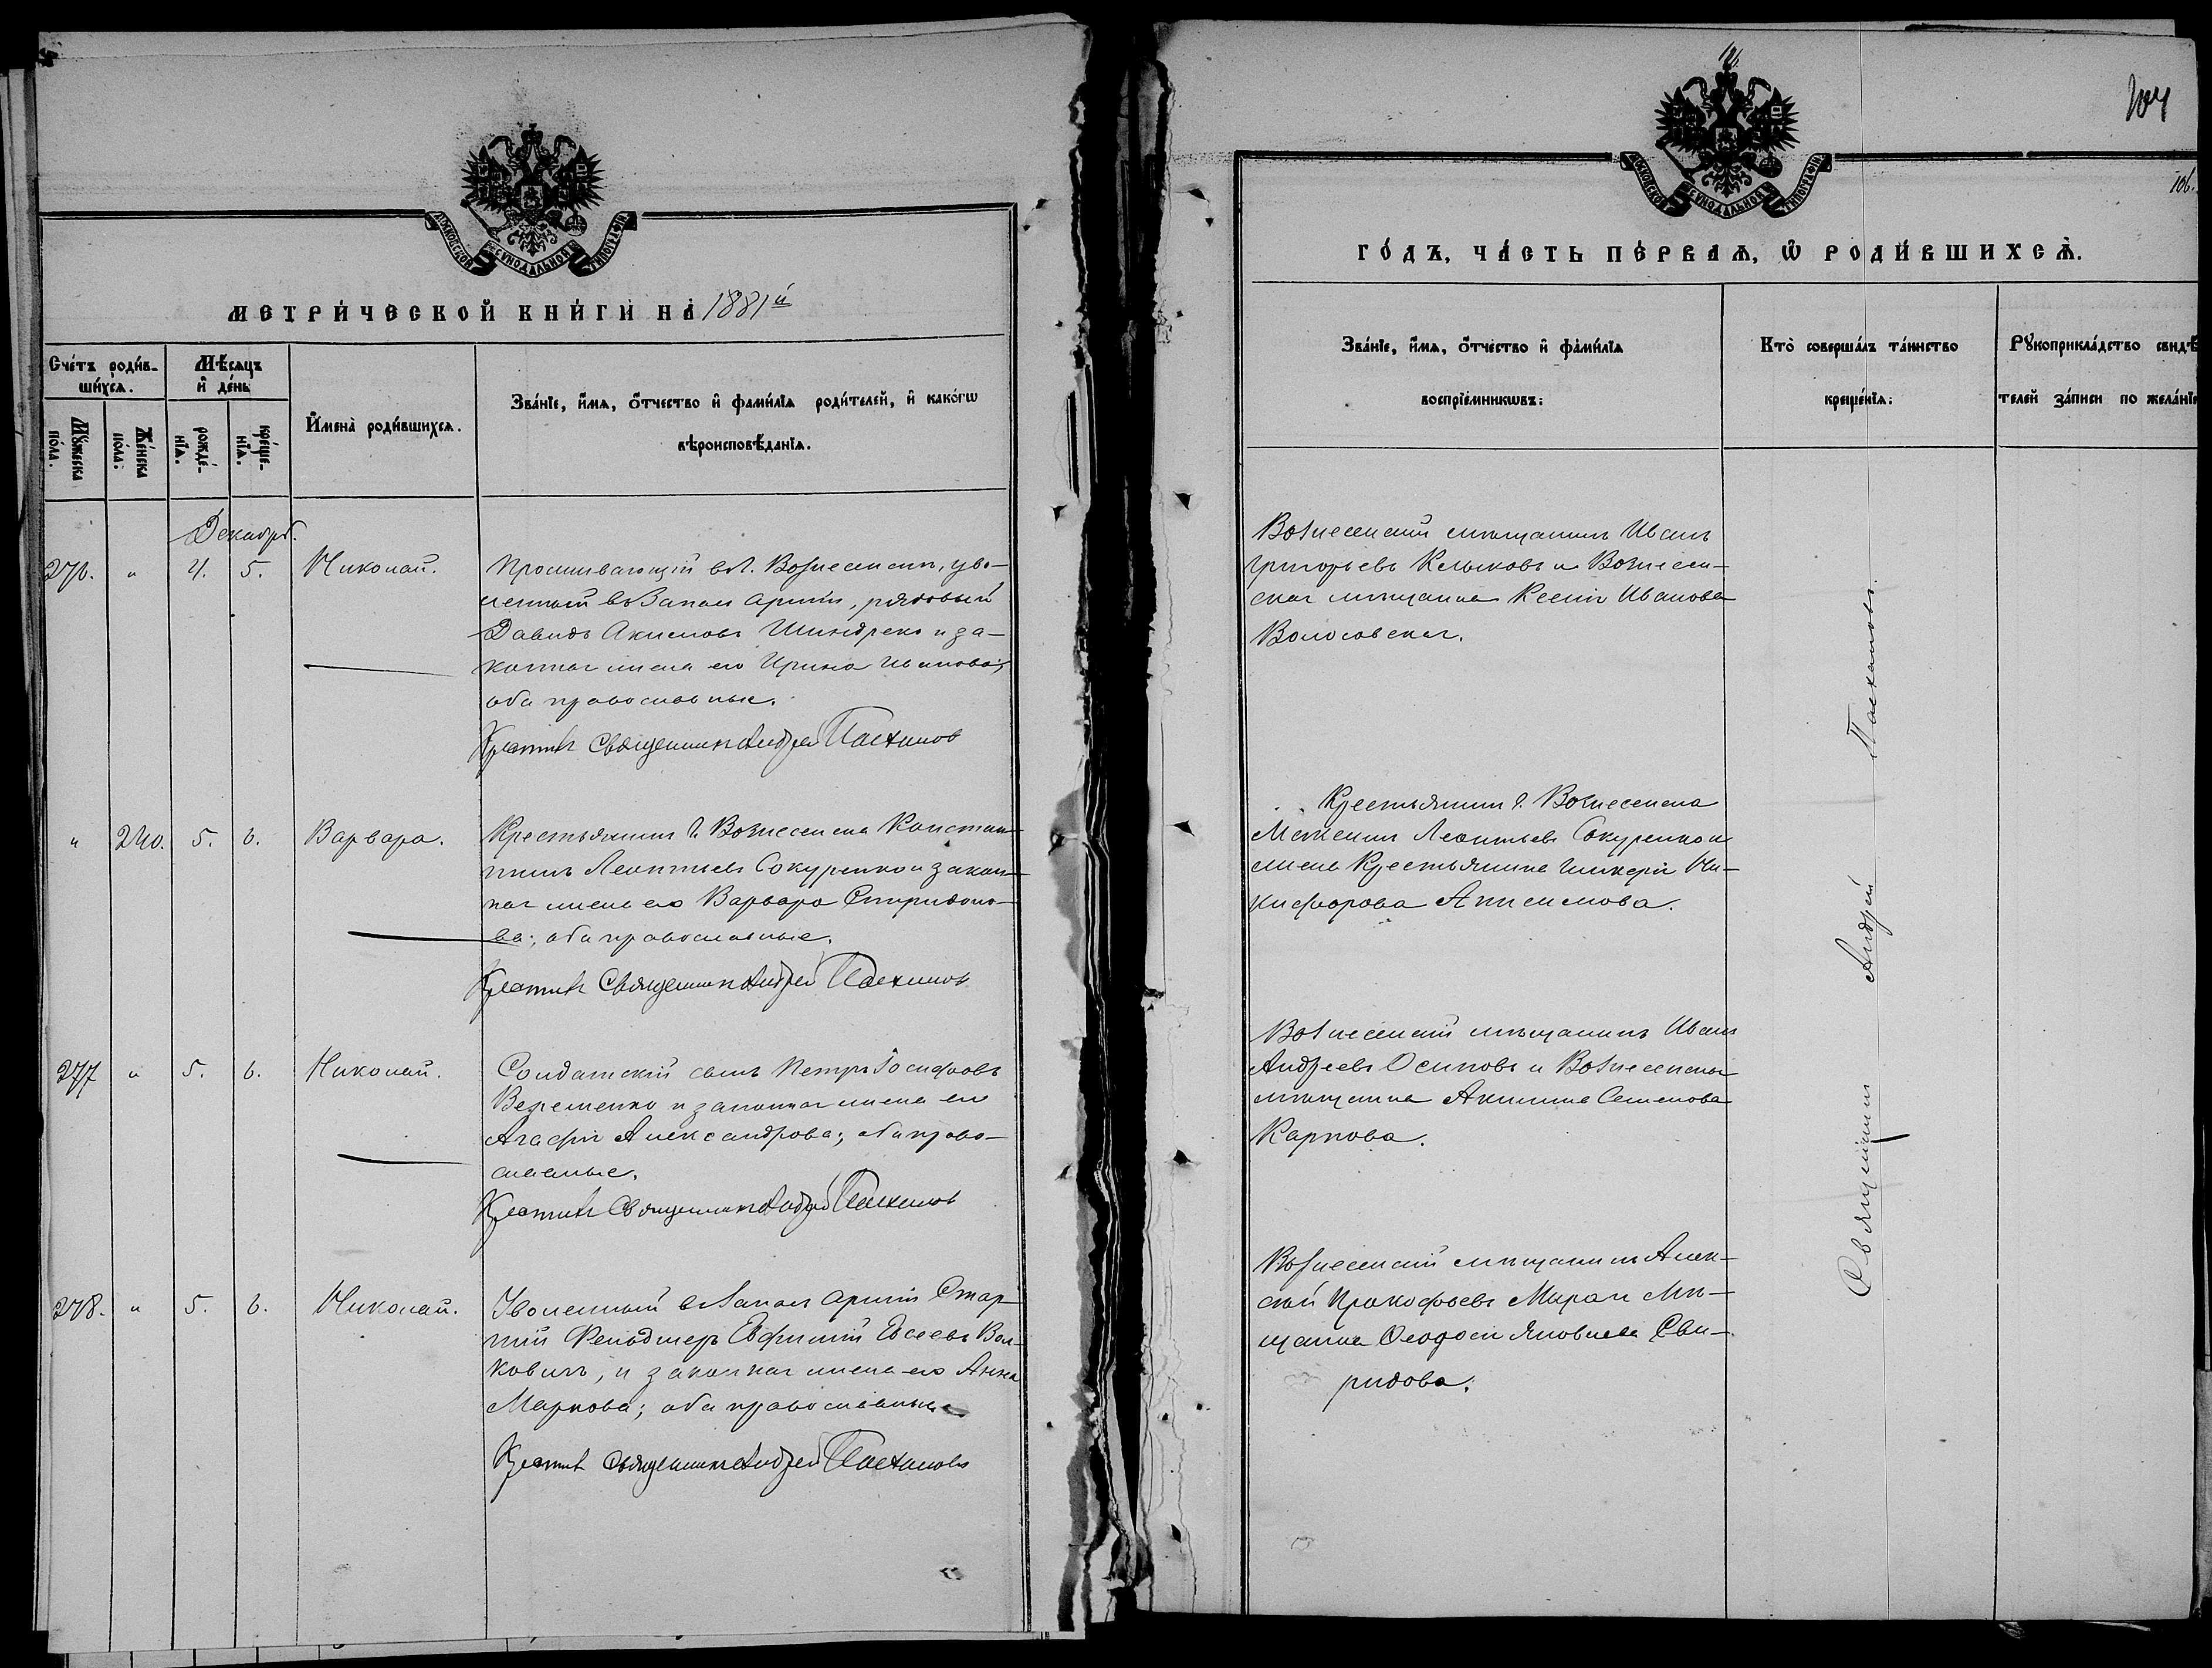 МОСКОВСКОЙ СѴНОДАЛЬНОЙ ТИПОГРАФІИ
МЕТРИ́ЧЕСКОЙ КНИ́ГИ НА 1881й
Сче́тъ роди́в-
ши́хся.
Мѣ́сяцъ
и де́нь
Мꙋ́жеска
по́ла.
Же́нска
по́ла.
рожде́-
нїѧ.
креще́-
нїѧ.
И҆мена̀ роди́вшихсѧ.
Зва́нїе, и҆́мѧ, ѻ҆́тчество и҆ фами́лїѧ роди́телей, и҆ како́гѡ
вѣроисповѣ́данїѧ.
Декабрь.
276. " 4. 5. Николай.
Проживающій въ г. Вознесенскѣ, уво-
ленный въ запасъ арміи, рядовый
Давидъ Акимовъ Шиндренко и за-
конная жена его Ирина Иванова;
оба православные.
Крестилъ Священникъ Андрей Пасхаловъ
" 240. 5. 6. Варвара.
Крестьянинъ г. Вознесенска Констан-
тинъ Леонтьевъ Сокуренко и закон-
ная жена его Варвара Спиридоно-
ва; оба православные.
Крестилъ Священникъ Андрей Пасхаловъ
277 " 5. 6. Николай.
Солдатскій сынъ Петръ Іосифовъ
Веременко и законная жена его
Агафія Александрова; оба право-
славные.
Крестилъ Священникъ Андрей Пасхаловъ
278. " 5. 6. Николай.
Уволенный въ запасъ арміи Стар-
шій Фельдшеръ Евфимій Евсеевъ Вол-
ковичъ, и законная жена его Анна
Маркова; оба православные
Крестилъ Священникъ Андрей Пасхаловъ
104
106.
МОСКОВСКОЙ СѴНОДАЛЬНОЙ ТИПОГРАФІИ
ГО́ДЪ, ЧА́СТЬ ПЕ́РВАѦ, Ѽ РОДИ́ВШИХСѦ.
Зва́нїе, и҆́мѧ, ѻ҆́тчество и҆ фами́лїѧ
воспрїе́мникѡвъ:
Кто̀ соверша́лъ та́инство
креще́нїѧ:
Рꙋкоприкла́дство свидѣ́
телей за́писи по жела́нїю
Вознесенскій мѣщанинъ Иванъ
Григорьевъ Клыковъ и Вознесен-
ская мѣщанка Ксенія Иванова
Волосовская.
Крестьянинъ г. Вознесенска
Леонтьевъ Сокуренко и
жена Крестьянина Гликерія Ни-
кифорова Анисимова.
Вознесенскій мѣщанинъ Иванъ
Андреевъ Осиповъ и Вознесенская
мѣщанка Акилина Семенова
Карпова.
Вознесенскій мѣщанинъ Алек-
сѣй Прокофьевъ Мѣ-
щанка Ѳеодосія Яковлева Сви-
ридова.
Священникъ Андрей Пасхаловъ